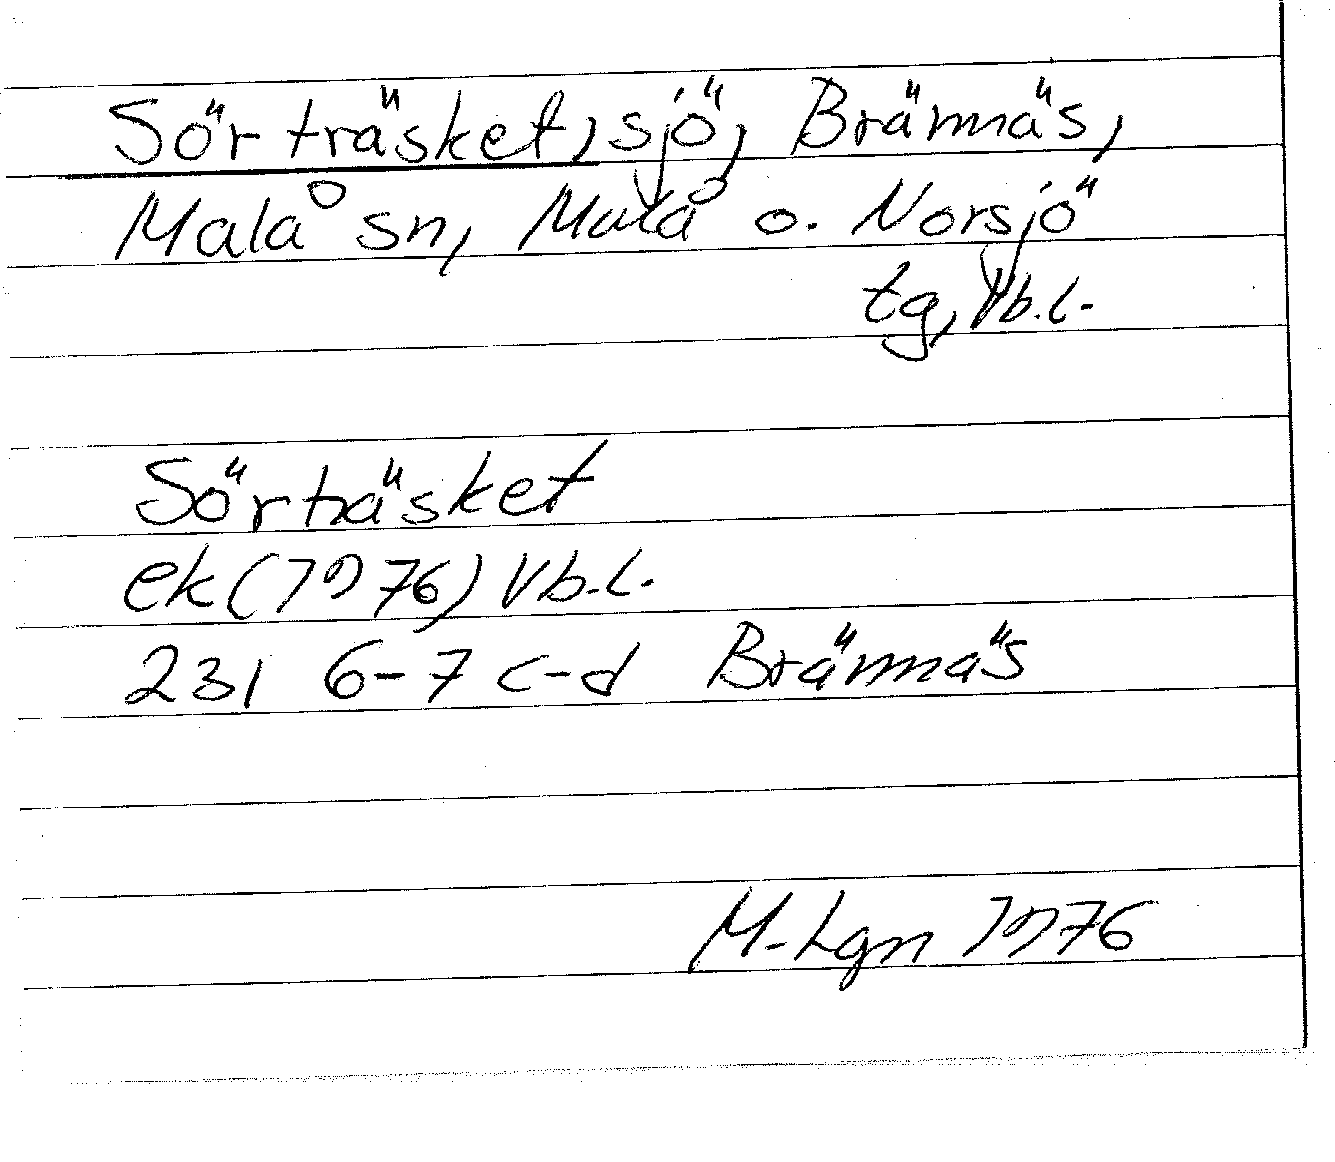 Sörträsket, sjö, Brännäs,
Malå sn, Malå o. Norsjö
tg, Vb.l.
Sörträsket
ek (1976) Vb.l.
23I 6-7 c-d Brännäs
M-Lgn 1976